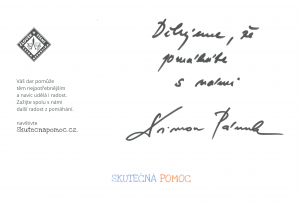 Děkujeme, že
pomáháte
s námi
Váš dar pomůže
těm nejpotřebnějším
a navíc udělá i radost.
Zažijte spolu s námi
další radost z pomáhání.
navštivte
Skutecnapomoc.cz.
SKUTEČNÁ POMOC